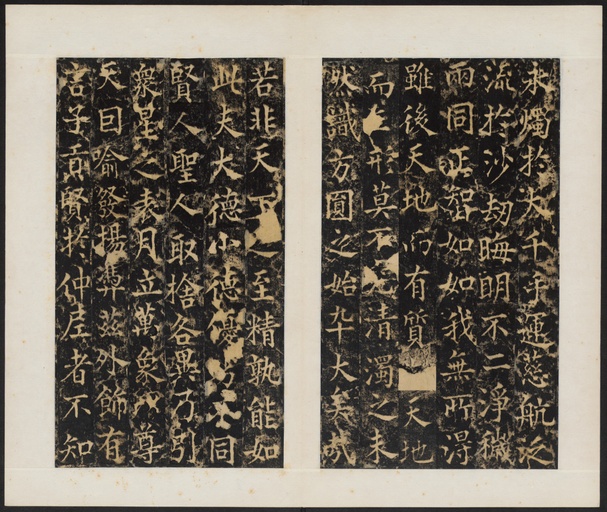 燭於大千乎運慈航泛
流於沙劫晦明不二淨穢
兩同正智如如我無所淂
雖後天地而有質天地
而形莫不清濁之未
然識方圓之始卒大矣哉
若非天下之至精孰能如
此夫大德小德優劣不同
賢人聖人取捨各異乃引
衆星之表月立萬象尊
天曰喻發揚茲外飾有
言子貢賢於仲尼者不知